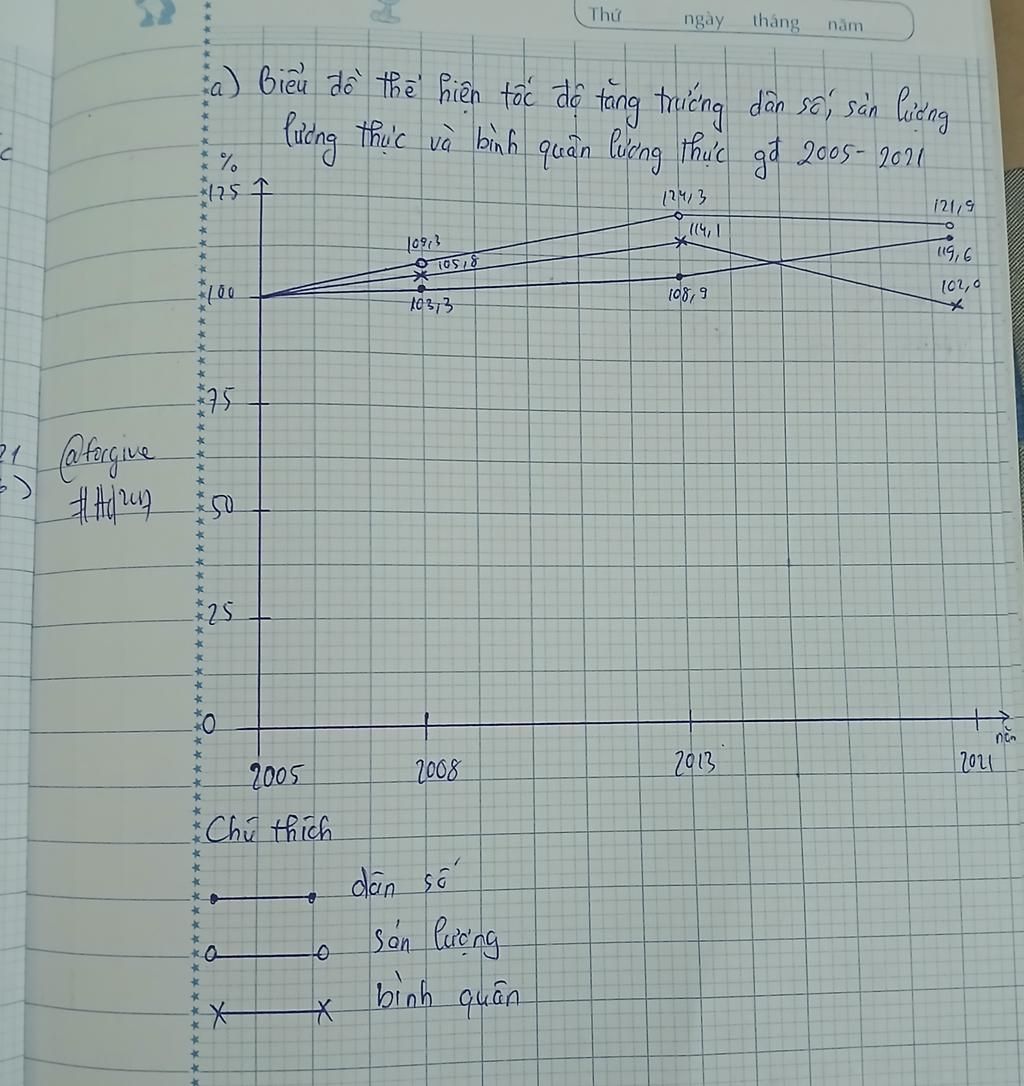 Thứ ngày tháng năm
a) Biểu đồ thể hiện tốc độ tăng trưởng dân số, sản lượng
lương thực và bình quân lương thực gđ 2005-2021
%
125
124,3
121,9
114,1
109,3
105,8
119,6
100
103,3
108,9
102,0
75
21
@forgive
b)
50
25
0
năm
2005
2008
2013
2021
Chú thích
dân số
sản lượng
bình quân